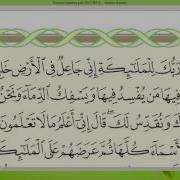 رَبُّكَ لِلْمَلَٰٓئِكَةِ إِنِّى جَاعِلٌ فِى ٱلْأَرْضِ خَلِ
فِيهَا مَن يُفْسِدُ فِيهَا وَيَسْفِكُ ٱلدِّمَآءَ وَنَحْنُ
كَ وَنُقَدِّسُ لَكَ ۖ قَالَ إِنِّىٓ أَعْلَمُ مَا لَا تَعْلَمُونَ
أَسْمَآءَ كُلَّهَا ثُمَّ عَرَضَهُمْ عَلَى ٱلْمَلَٰٓئِكَ